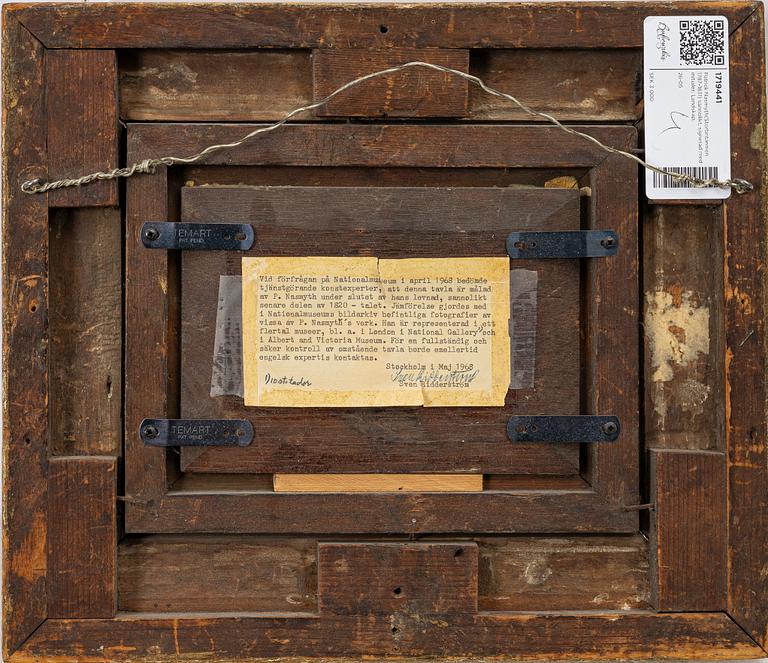 Bukowskis
1719441
Patrick Nasmyth(Storbritannien
1787-1831) sannolikt, signerad med
initialer. Landskap.
26-05
SEK 3 000
4
TEMART
PAT. PEND.
Vid förfrågan på Nationalmuseum i april 1968 bedömde
tjänstgörande konstexperter, att denna tavla är målad
av P. Nasmyth under slutet av hans levnad, sannolikt
senare delen av 1820 - talet. Jämförelse gjordes med
i Nationalmuseums bildarkiv befintliga fotografier av
vissa av P. Nasmyth's verk. Han är representerad i ett
flertal museer, bl. a. i London i National Gallery och
i Albert and Victoria Museum. För en fullständig och
säker kontroll av omstående tavla borde emellertid
engelsk expertis kontaktas.
Stockholm i Maj 1968
Sven Ridderström
TEMART
PAT. PEND.